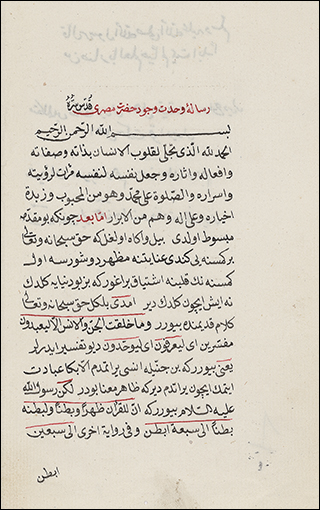 رسالهٔ وحدت وجود حضرت مصری قدس سره
بسم الله الرحمن الرحیم
الحمد لله الذی تجلی لقلوب الانسان بذاته وصفاته
وافعاله واثاره وجعل نفسه لنفسه مرات لرؤیته
واسراره والصلوة علی محمد وهو من المحبوب وزبدة
اخیاره وعلی اله وهم من الابرار اما بعد چونکه بو مقدمه
مبسوط اولدی بیل واکاه اولغل که حق سبحانه وتعالی
برکسنه یی کندی عنایتنه مظهر دوشورسه اول
کسنه نك قلبنه اشتیاق براغور که بز بو دنیایه کلدك
نه ایش ایچون کلدك دیر امدی بلکل حق سبحانه وتعالی
کلام قدیمنده بیورر وما خلقت الجن والانس الا لیعبدون
مفسرین ای لیعرفون ای لیوحدون دیو تفسیر ایدرلر
یعنی بیورر که بن جنیله انسی براتمدم الا بکا عبادت
ایتمك ایچون براتدم دیرکه ظاهر معنا بودر لکن رسول الله
علیه السلام بیورر که ان للقرآن ظهرا وبطنا ولبطنه
بطنا الی سبعة ابطن وفی روایة اخری الی سبعین
ابطن